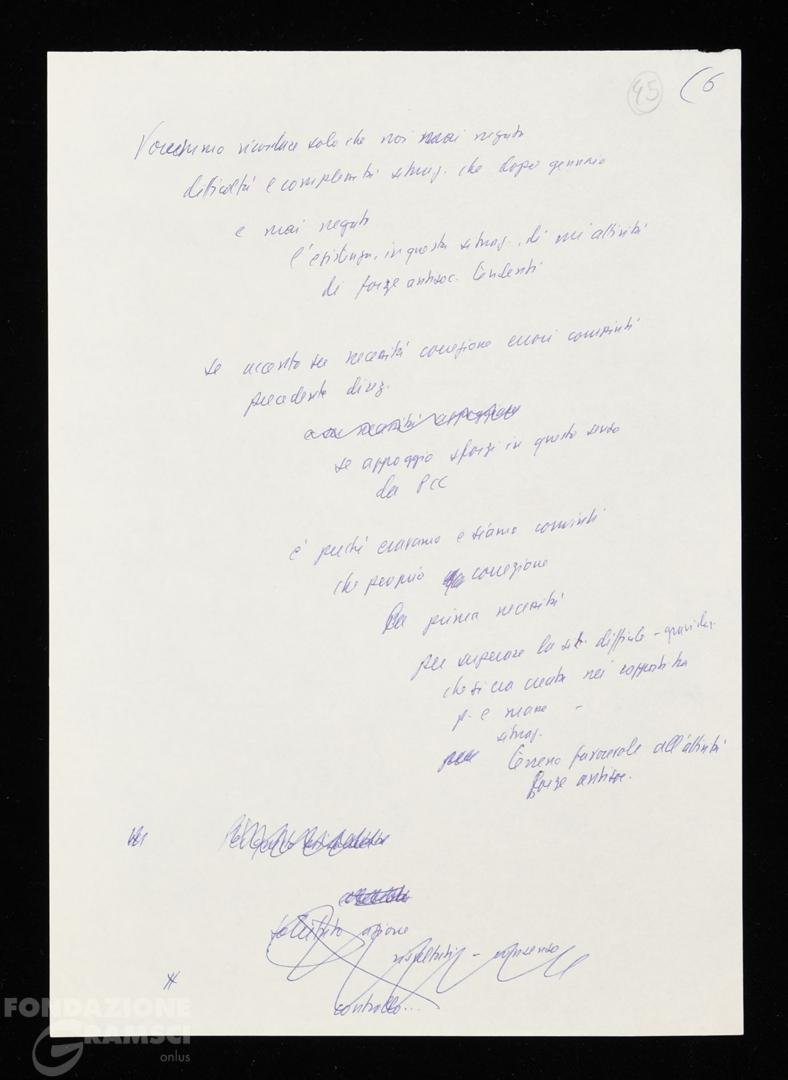 45
(6
Vorremmo ricordare solo che noi mai negato
difficoltà e complessità situaz. che dopo gennaio
e mai negato
l'esistenza, in questa situaz., di un'attività
di forze antisoc. tendenti
se accento su necessità correzione errori compiuti
precedente direz.
se appoggio sforzi in questo senso
da PCC
è perché eravamo e siamo convinti
che proprio correzione
la prima necessità
per superare la sit. difficile -
che si era creata nei rapporti tra
p. e masse -
situaz.
terreno favorevole all'attività
forze antisoc.
azione
controllo...
FONDAZIONE
GRAMSCI
onlus